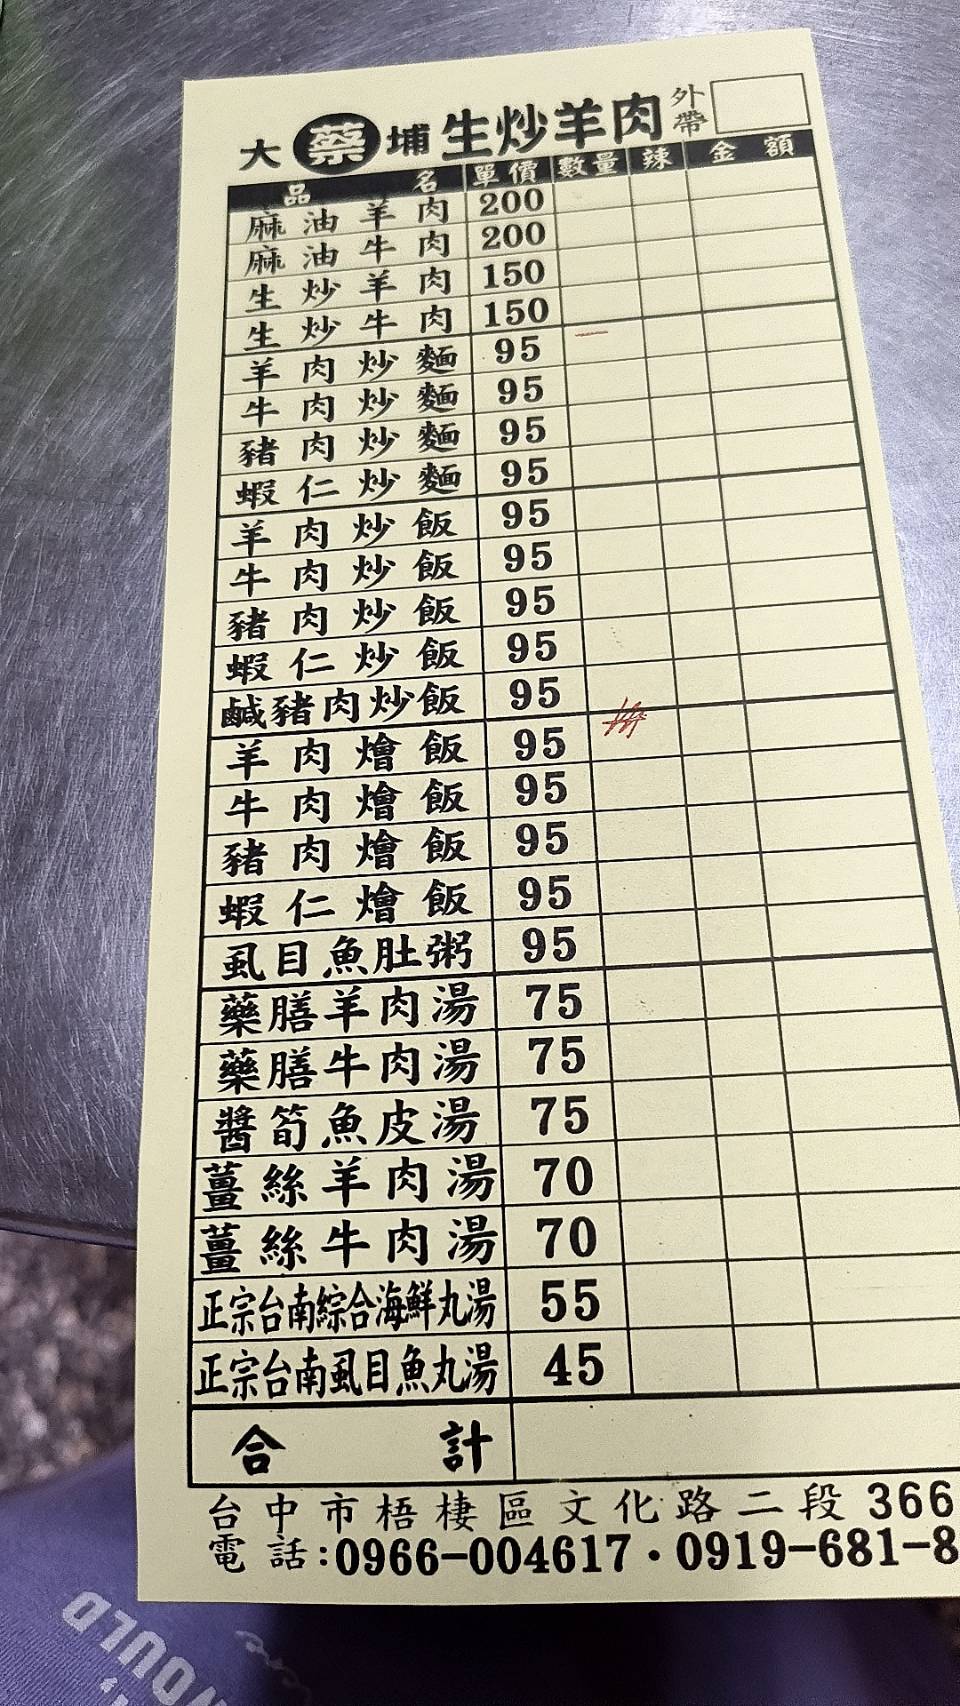 大蔡埔生炒羊肉 外帶
品名 單價 數量 辣 金額
麻油羊肉 200
麻油牛肉 200
生炒羊肉 150
生炒牛肉 150
羊肉炒麵 95
牛肉炒麵 95
豬肉炒麵 95
蝦仁炒麵 95
羊肉炒飯 95
牛肉炒飯 95
豬肉炒飯 95
蝦仁炒飯 95
鹹豬肉炒飯 95
羊肉燴飯 95
牛肉燴飯 95
豬肉燴飯 95
蝦仁燴飯 95
虱目魚肚粥 95
藥膳羊肉湯 75
藥膳牛肉湯 75
醬筍魚皮湯 75
薑絲羊肉湯 70
薑絲牛肉湯 70
正宗台南綜合海鮮丸湯 55
正宗台南虱目魚丸湯 45
合計
台中市梧棲區文化路二段366
電話:0966-004617·0919-681-8